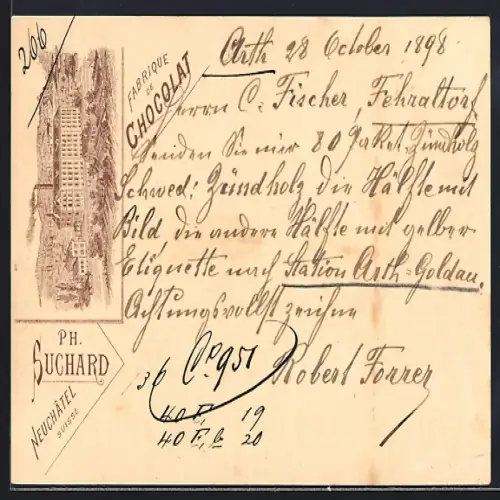 266
FABRIQUE
DE
CHOCOLAT
Arth 28 October 1898
Herrn C. Fischer, Fehraltorf
Senden Sie mir 80 Paket Zündholz
Schwed: Zündholz die Hälfte mit
Bild, die andere Hälfte mit gelber
Etiquette nach Station Arth-Goldau.
Achtungsvollst zeichne
Robert Forrer
PH.
SUCHARD
NEUCHÂTEL
SUISSE
36
951
40 19
40 20